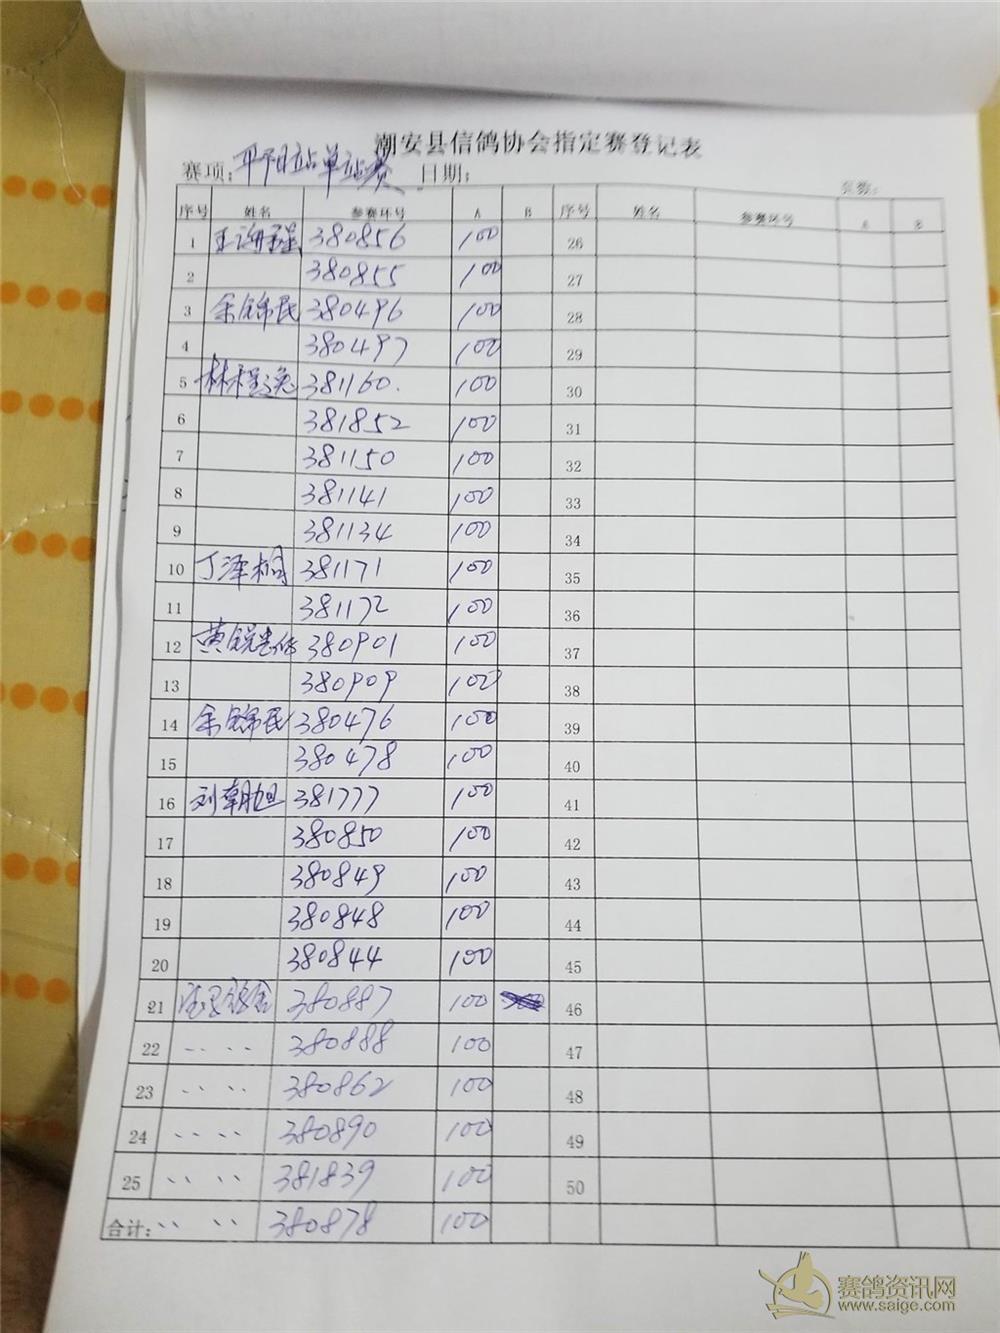 潮安县信鸽协会指定赛登记表
赛项: 平阳站单站赛 日期:
序号 姓名 参赛环号 A B 序号 姓名 参赛环号 A B
1 380856 100 26
2 380855 100 27
3 余锦民 380496 100 28
4 380497 100 29
5 林程逸 381160. 100 30
6 381852 100 31
7 381150 100 32
8 381141 100 33
9 381134 100 34
10 丁泽桐 381171 100 35
11 381172 100 36
12 黄锐 380901 100 37
13 380909 100 38
14 余锦民 380476 100 39
15 380478 100 40
16 刘朝旭 381777 100 41
17 380850 100 42
18 380849 100 43
19 380848 100 44
20 380844 100 45
21 380887 100 46
22 380888 100 47
23 380862 100 48
24 380890 100 49
25 381839 100 50
合计: 380878 100
赛鸽资讯网
www.saige.com